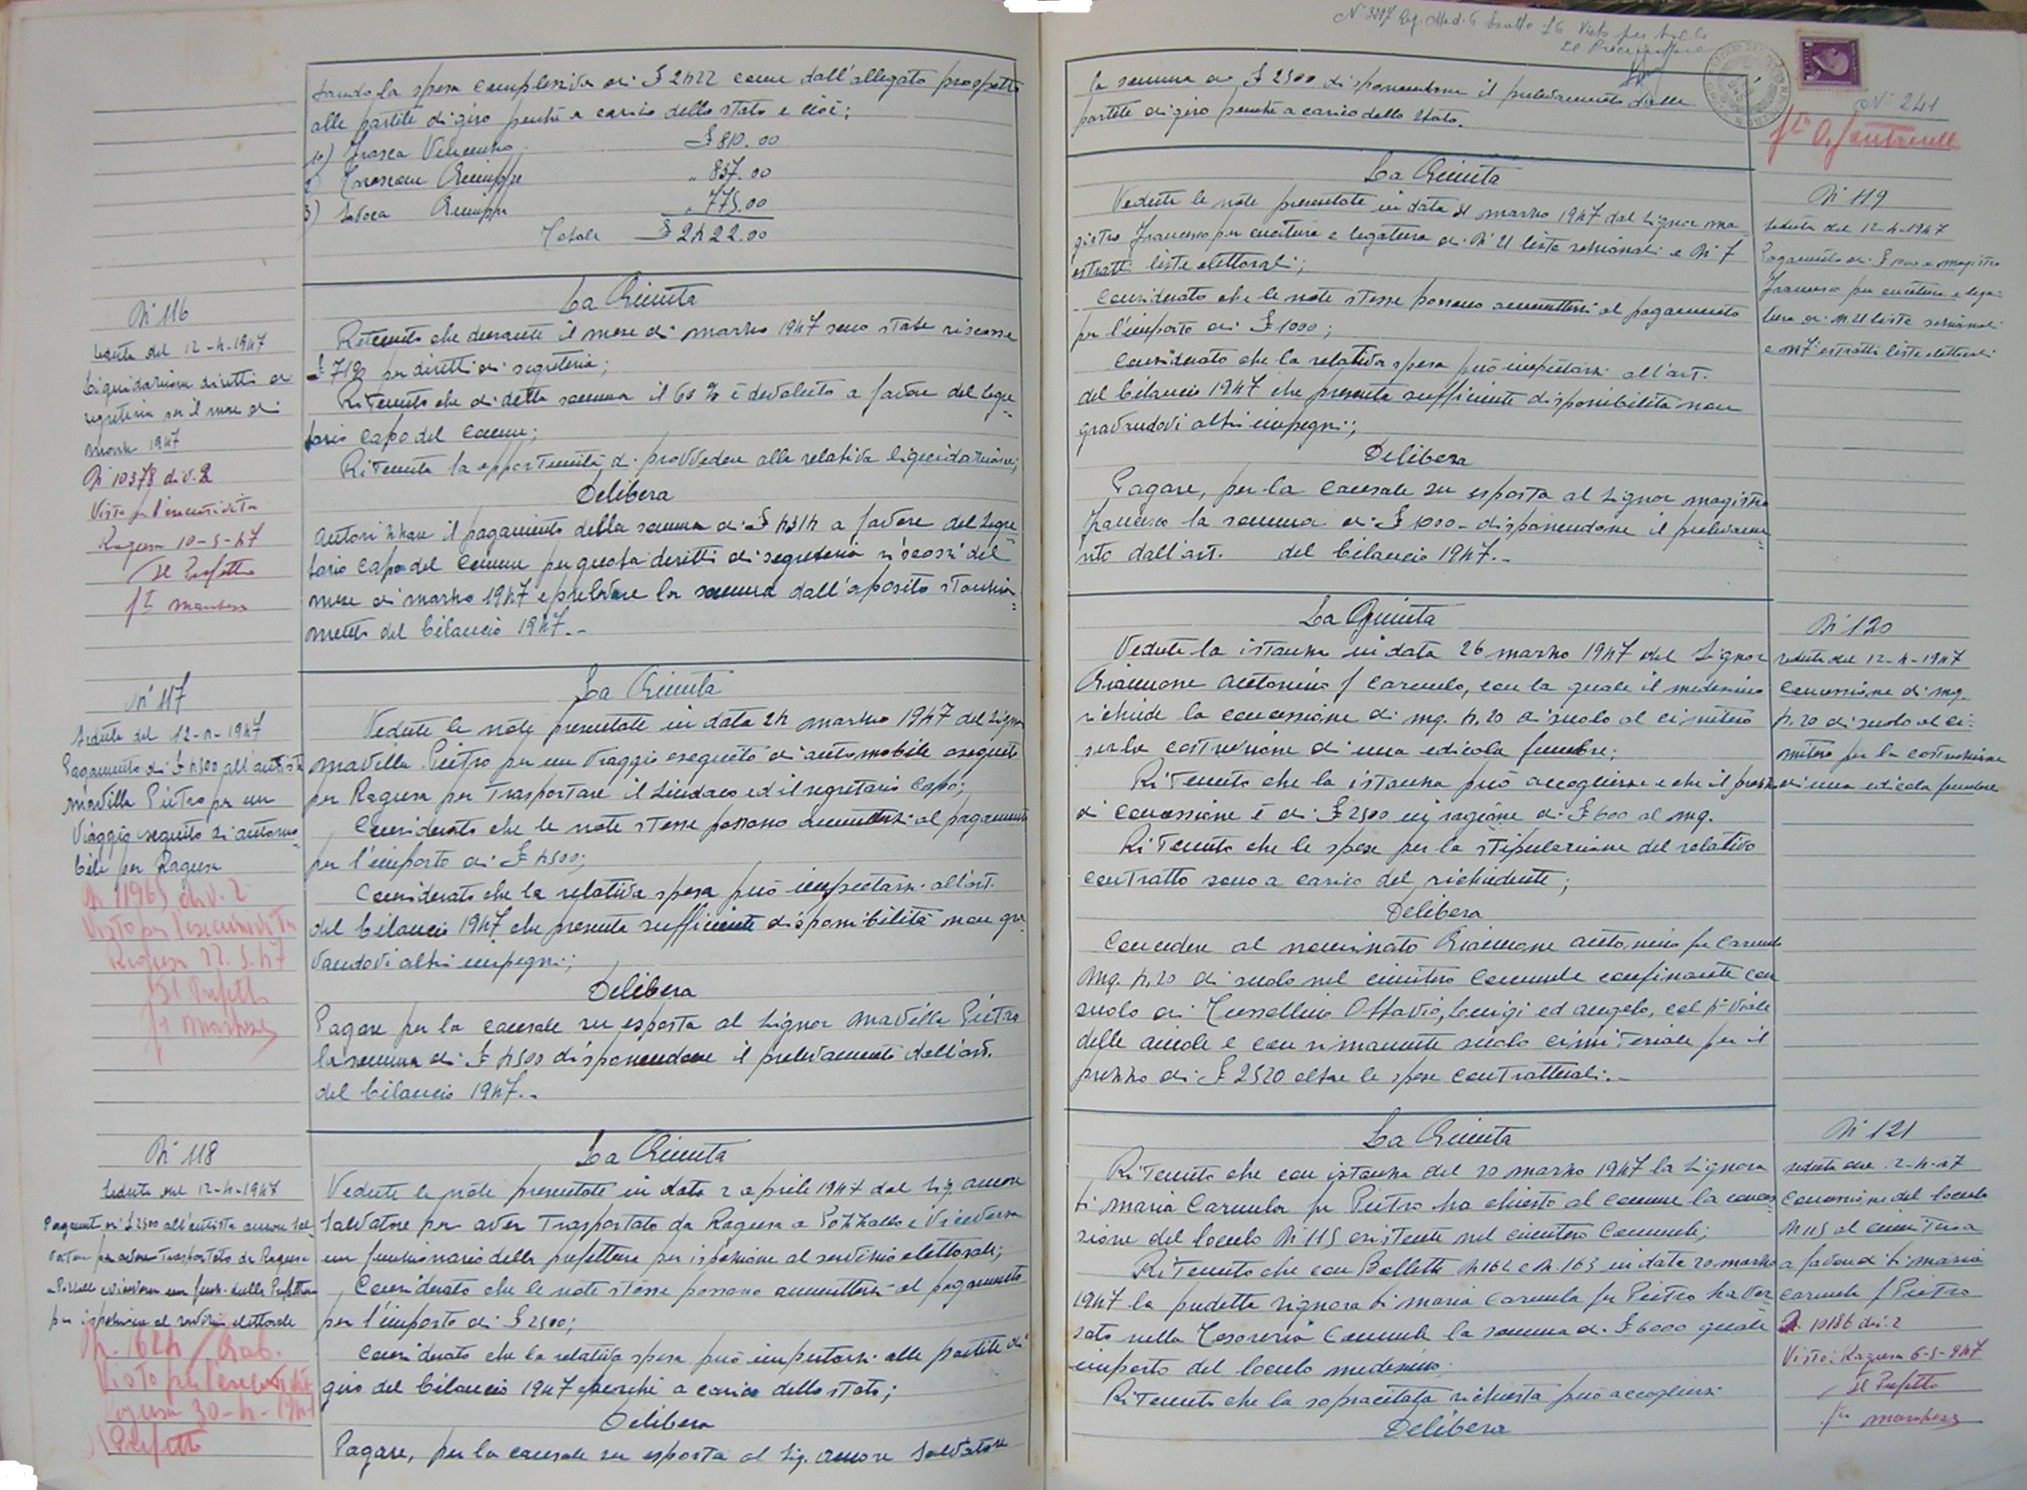 tando la spesa complessiva di £ 2422 come dall'allegato prospetto
alle partite di giro perché a carico dello stato e cioè:
1°) Frasca Vincenzo £ 810.00
2) Giuseppe " 837.00
3) Savoca Giuseppe " 775.00
Totale £ 2422.00
N° 116
Seduta del 12-4-1947
Liquidazione diritti di
segreteria per il mese di
marzo 1947
N 10378 div. 2
Visto per l'esecutività
Ragusa 10-5-47
Il Prefetto
La Giunta
Ritenuto che durante il mese di marzo 1947 sono state riscosse
£ 7190 per diritti di segreteria;
Ritenuto che di detta somma il 60% è devoluto a favore del Segre-
tario Capo del Comune;
Ritenuta la opportunità di provvedere alla relativa liquidazione;
Delibera
Autorizzare il pagamento della somma di £ 4314 a favore del Segre-
tario Capo del Comune per quota diritti di segreteria riscossi del
mese di marzo 1947 e prelevare la somma dall'apposito stanzia-
mento del bilancio 1947.-
N° 117
Seduta del 12-4-1947
Pagamento di £ 4500 all'autista
Mavilla Pietro per un
viaggio seguito di automo-
bile per Ragusa
N 11965 div. 2
Visto per l'esecutività
Ragusa 22.5.47
Il Prefetto
La Giunta
Vedute le note presentate in data 24 marzo 1947 del Signor
Mavilla Pietro per un viaggio eseguito di automobile eseguito
per Ragusa per trasportare il Sindaco ed il segretario Capo;
Considerato che le note stesse possono ammettersi al pagamento
per l'importo di £ 4500;
Considerato che la relativa spesa può imputarsi all'art.
del bilancio 1947 che presenta sufficiente disponibilità non gra-
vandovi altri impegni;
Delibera
Pagare per la causale su esposta al Signor Mavilla Pietro
la somma di £ 4500 disponendone il prelevamento dall'art.
del bilancio 1947.-
N° 118
Seduta del 12-4-1947
Pagamento di £ 2500 all'autista Amore Sal-
vatore per avere trasportato da Ragusa
a Pozzallo e viceversa un funz. della Prefettura
per ispezione al servizio elettorale
N. 1624 / Gab.
Visto per l'esecutività
Ragusa 30-4-1947
Il Prefetto
La Giunta
Vedute le note presentate in data 2 aprile 1947 dal Sig. Amore
Salvatore per aver trasportato da Ragusa a Pozzallo e viceversa
un funzionario della prefettura per ispezione al servizio elettorale;
Considerato che le note stesse possono ammettersi al pagamento
per l'importo di £ 2500;
Considerato che la relativa spesa può imputarsi alle partite di
giro del bilancio 1947 perché a carico dello stato;
Delibera
Pagare, per la causale su esposta al Sig. Amore Salvatore
Visto per bollo
Il Procuratore
N° 241
la somma di £ 2500 disponendone il prelevamento dalle
partite di giro perché a carico dello Stato.
La Giunta
Vedute le note presentate in data 31 marzo 1947 dal Signor Ma-
gistro Francesco per cucitura e legatura di N° 21 liste sezionali e N° 7
estratti liste elettorali;
Considerato che le note stesse possono ammettersi al pagamento
per l'importo di £ 1000;
Considerato che la relativa spesa può imputarsi all'art.
del bilancio 1947 che presenta sufficiente disponibilità non
gravandovi altri impegni;
Delibera
Pagare, per la causale su esposta al Signor Magistro
Francesco la somma di £ 1000 - disponendone il prelevame-
nto dall'art. del bilancio 1947.-
N° 119
Seduta del 12-4-1947
Pagamento di £ 1000 a Magistro
Francesco per cucitura e lega-
tura di N 21 liste sezionali
e N° 7 estratti liste elettorali
La Giunta
Veduta la istanza in data 26 marzo 1947 del Signor
Giannone Antonino f Carmelo, con la quale il medesimo
richiede la concessione di mq. 4,20 di suolo al cimitero
per la costruzione di una edicola funebre;
Ritenuto che la istanza può accogliersi e che il prezzo
di concessione è di £ 2500 in ragione di £ 600 al mq.
Ritenuto che le spese per la stipulazione del relativo
contratto sono a carico del richiedente;
Delibera
Concedere al nominato Giannone Antonino fu Carmelo
mq. 4,20 di suolo nel cimitero Comunale confinante con
suolo di Tussellino Ottavio, Luigi ed Angelo, col 4° viale
delle aiuole e con rimanente suolo cimiteriale per il
prezzo di £ 2520 oltre le spese contrattuali.-
N° 120
Seduta del 12-4-1947
Concessione di mq.
4,20 di suolo al ci-
mitero per la costruzione
di una edicola funebre
La Giunta
Ritenuto che con istanza del 20 marzo 1947 la Signora
Di Maria Carmela fu Pietro ha chiesto al comune la conces-
sione del loculo N 115 esistente nel cimitero Comunale;
Ritenuto che con Bollette N 162 e N. 163 in data 20 marzo
1947 la predetta Signora Di Maria Carmela fu Pietro ha ver-
sato nella Tesoreria Comunale la somma di £ 6000 quale
importo del loculo medesimo;
Ritenuto che la sopracitata richiesta può accogliersi
Delibera
N° 121
Seduta del 12-4-47
Concessione del loculo
N 115 al cimitero
a favore di Di Maria
Carmela f Pietro
N 10186 div. 2
Visto: Ragusa 6-5-947
Il Prefetto